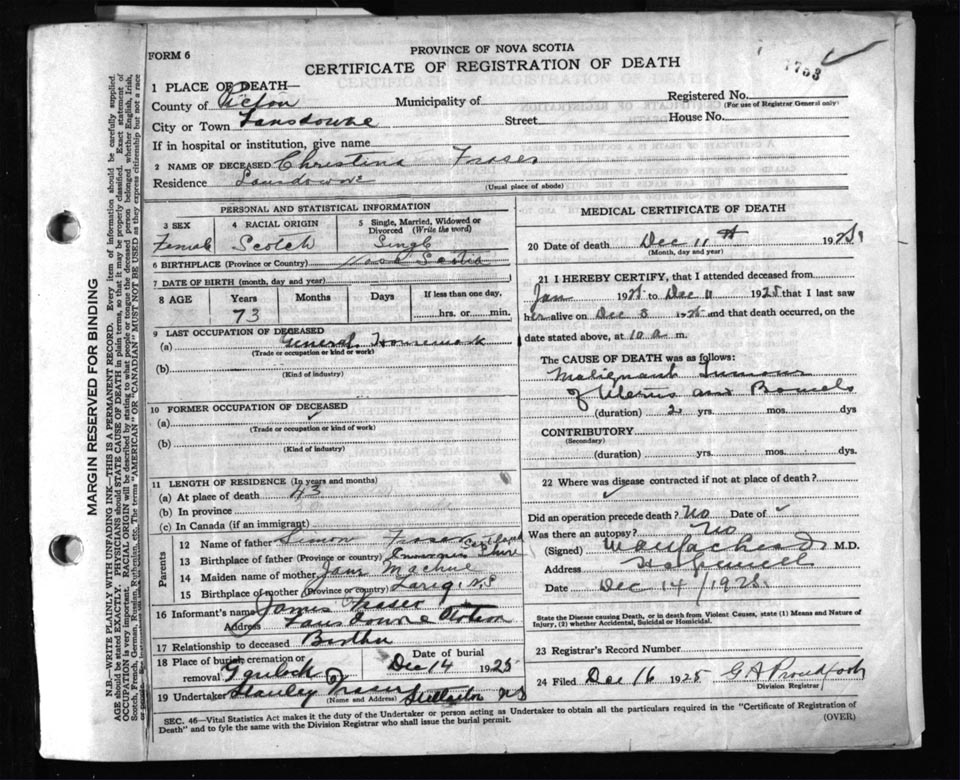 FORM 6
PROVINCE OF NOVA SCOTIA
CERTIFICATE OF REGISTRATION OF DEATH
7753
1 PLACE OF DEATH—
County of Pictou Municipality of Registered No.
(For use of Registrar General only)
City or Town Lansdowne Street House No.
If in hospital or institution, give name
2 NAME OF DECEASED Christina Fraser
Residence Lansdowne
(Usual place of abode)
PERSONAL AND STATISTICAL INFORMATION
3 SEX 4 RACIAL ORIGIN 5 Single, Married, Widowed or Divorced (Write the word)
Female Scotch Single
6 BIRTHPLACE (Province or Country) Nova Scotia
7 DATE OF BIRTH (month, day and year)
8 AGE Years Months Days If less than one day,
73 hrs. or min.
9 LAST OCCUPATION OF DECEASED
(a) General Housework
(Trade or occupation or kind of work)
(b)
(Kind of industry)
10 FORMER OCCUPATION OF DECEASED
(a)
(Trade or occupation or kind of work)
(b)
(Kind of industry)
11 LENGTH OF RESIDENCE (In years and months)
(a) At place of death 73
(b) In province
(c) In Canada (if an immigrant)
Parents
12 Name of father Simon Fraser
13 Birthplace of father (Province or country)
14 Maiden name of mother Jane
15 Birthplace of mother (Province or country) N.S
16 Informant's name James Fraser
Address Lansdowne Station
17 Relationship to deceased Brother
18 Place of burial, cremation or removal Date of burial
Dec 14 1925
19 Undertaker Stanley Fraser (Name and Address) Stellarton N S
MEDICAL CERTIFICATE OF DEATH
20 Date of death Dec 11th 1925
(Month, day and year)
21 I HEREBY CERTIFY, that I attended deceased from
Jan 1925 to Dec 11 1925 that I last saw
her alive on Dec 3 1925 and that death occurred, on the
date stated above, at 10 a m.
The CAUSE OF DEATH was as follows:
Malignant Tumour
of Uterus and Bowels
(duration) 2 yrs. mos. dys
CONTRIBUTORY
(Secondary)
(duration) yrs. mos. dys.
22 Where was disease contracted if not at place of death?
Did an operation precede death? No Date of
Was there an autopsy? No
(Signed) M.D.
Address Hopewell
Date Dec 14/1925
State the Disease causing Death, or in death from Violent Causes, state (1) Means and Nature of
Injury, (2) whether Accidental, Suicidal or Homicidal.
23 Registrar's Record Number
24 Filed Dec 16 1925 G A Proudfoot
Division Registrar
SEC. 46—Vital Statistics Act makes it the duty of the Undertaker or person acting as Undertaker to obtain all the particulars required in the "Certificate of Registration of
Death" and to fyle the same with the Division Registrar who shall issue the burial permit.
(OVER)
MARGIN RESERVED FOR BINDING
N.B.—WRITE PLAINLY WITH UNFADING INK—THIS IS A PERMANENT RECORD. Every item of information should be carefully supplied.
AGE should be stated EXACTLY. PHYSICIANS should STATE CAUSE OF DEATH in plain terms, so that it may be properly classified. Exact statement of
OCCUPATION is very important. RACIAL ORIGIN will be described by stating to what people or tongue the deceased person belonged whether English, Irish,
Scotch, French, German, Russian, Ruthenian, etc. The terms "AMERICAN" OR "CANADIAN" MUST NOT BE USED as they express citizenship but not a race